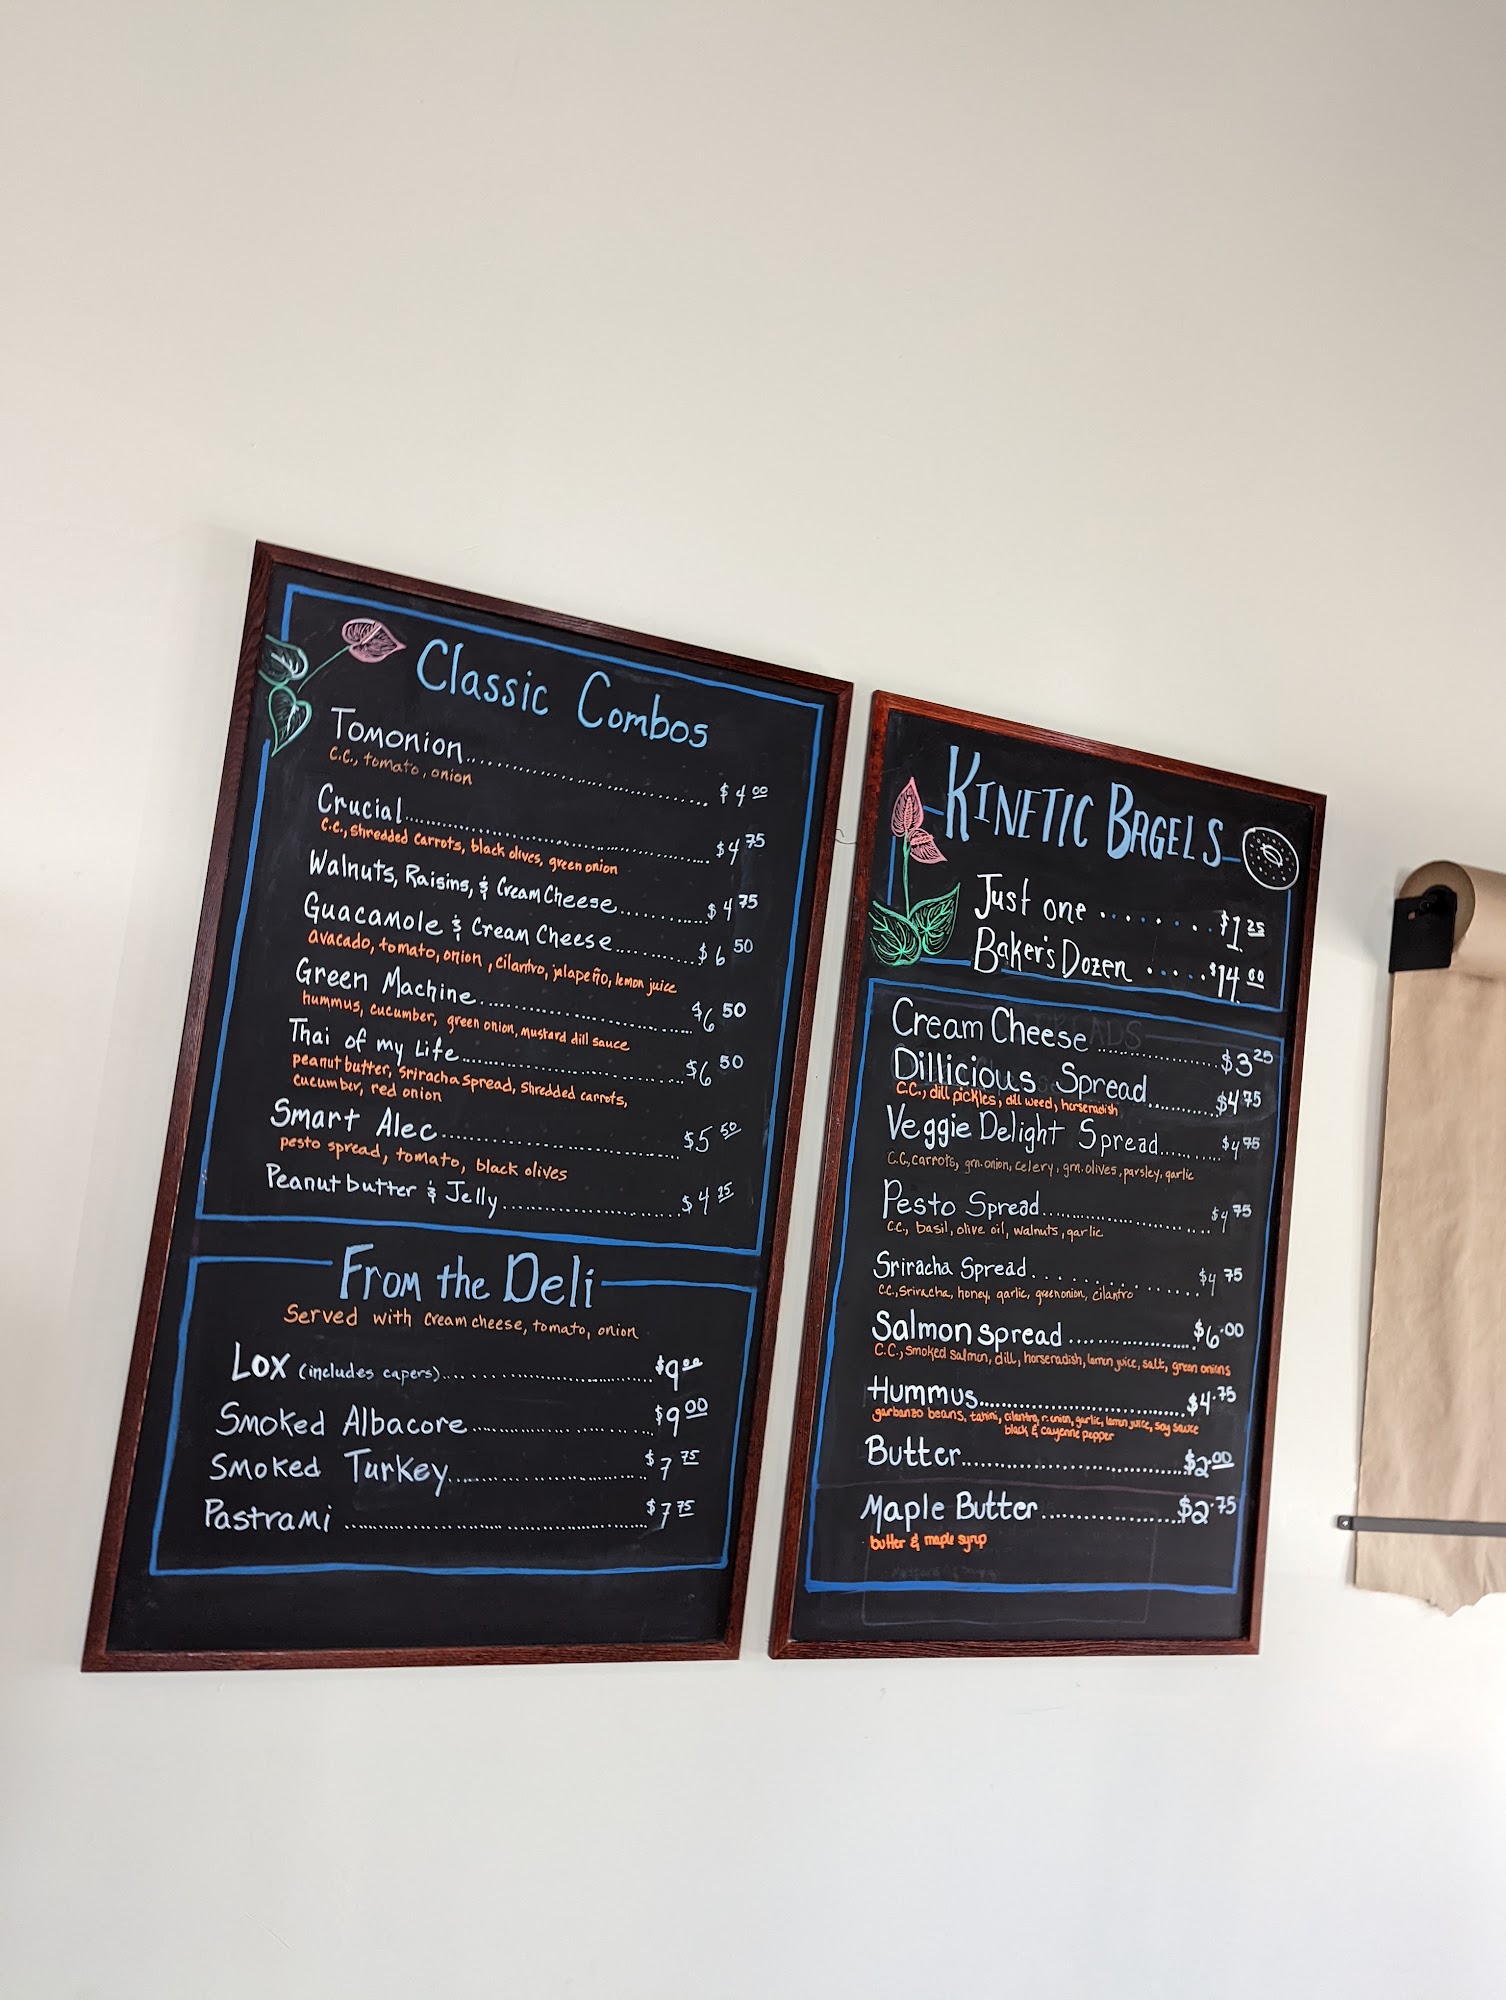 Classic Combos
Tomonion.......... $4.00
c.c., tomato, onion
Crucial.......... $4.75
c.c., shredded carrots, black olives, green onion
Walnuts, Raisins, & Cream Cheese.......... $4.75
Guacamole & Cream Cheese.......... $6.50
avacado, tomato, onion, cilantro, jalapeño, lemon juice
Green Machine.......... $6.50
hummus, cucumber, green onion, mustard dill sauce
Thai of my Life.......... $6.50
peanut butter, sriracha spread, shredded carrots,
cucumber, red onion
Smart Alec.......... $5.50
pesto spread, tomato, black olives
Peanut butter & Jelly.......... $4.25
From the Deli
Served with cream cheese, tomato, onion
Lox (includes capers).......... $9.00
Smoked Albacore.......... $9.00
Smoked Turkey.......... $7.75
Pastrami.......... $7.75
KINETIC BAGELS
Just one.......... $1.25
Baker's Dozen.......... $14.00
Cream Cheese.......... $3.25
Dillicious Spread.......... $4.75
C.C., dill pickles, dill weed, horseradish
Veggie Delight Spread.......... $4.75
C.C, carrots, grn. onion, celery, grn. olives, parsley, garlic
Pesto Spread.......... $4.75
c.c., basil, olive oil, walnuts, garlic
Sriracha Spread.......... $4.75
c.c., sriracha, honey, garlic, green onion, cilantro
Salmon spread.......... $6.00
C.C., smoked salmon, dill, horseradish, lemon juice, salt, green onions
Hummus.......... $4.75
garbanzo beans, tahini, cilantro, r. onion, garlic, lemon juice, soy sauce
black & cayenne pepper
Butter.......... $2.00
Maple Butter.......... $2.75
butter & maple syrup